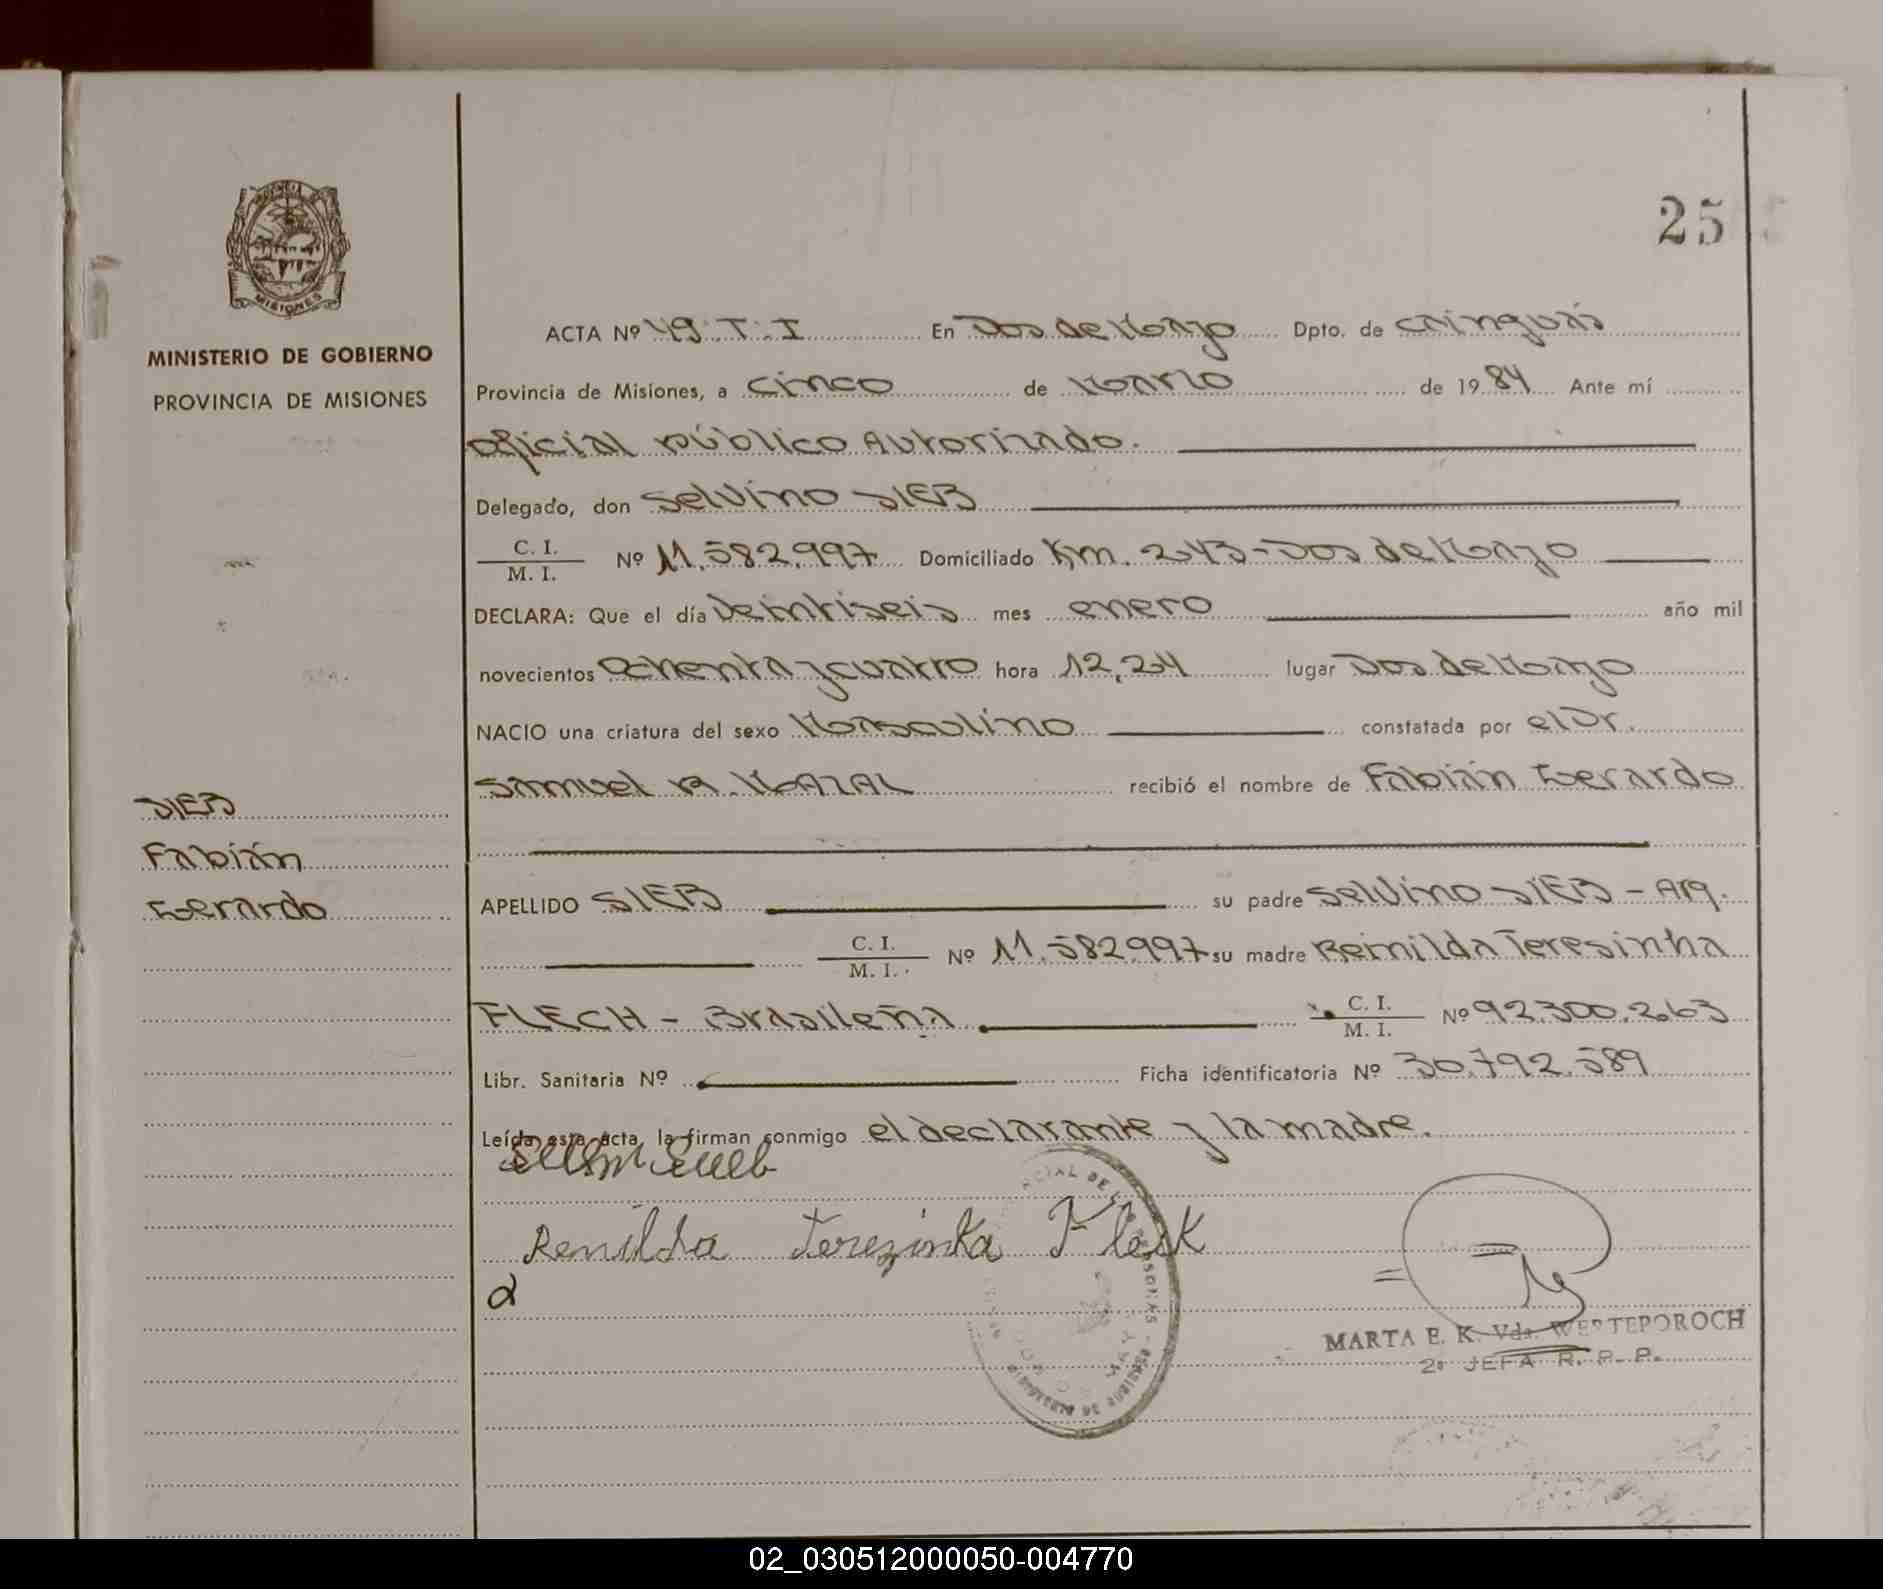 25
MISIONES
MINISTERIO DE GOBIERNO
PROVINCIA DE MISIONES
SIEB
Fabián
Gerardo
ACTA Nº 49:T:I En Dos de Mayo Dpto. de Cainguás
Provincia de Misiones, a cinco de Marzo de 1984 Ante mí
Oficial público Autorizado.
Delegado, don Selvino SIEB
C. I. / M. I. Nº 11.582.997 Domiciliado Km. 243-Dos de Mayo
DECLARA: Que el día Veintiseis mes enero año mil
novecientos Ochenta y cuatro hora 12,24 lugar Dos de Mayo
NACIO una criatura del sexo Masculino constatada por el Dr.
Samuel R. MAZAL recibió el nombre de Fabián Gerardo
APELLIDO SIEB su padre Selvino SIEB - Arg.
C. I. / M. I. Nº 11.582.997 su madre Reinilda Teresinha
FLECH - Brasileña C. I. / M. I. Nº 92.300.263
Libr. Sanitaria Nº Ficha identificatoria Nº 30.792.589
Leída esta acta, la firman conmigo el declarante y la madre.
Renilda Terezinha Fleck
MARTA E. K. Vda. WERTEPOROCH
2º JEFA R. P. P.
02_030512000050-004770